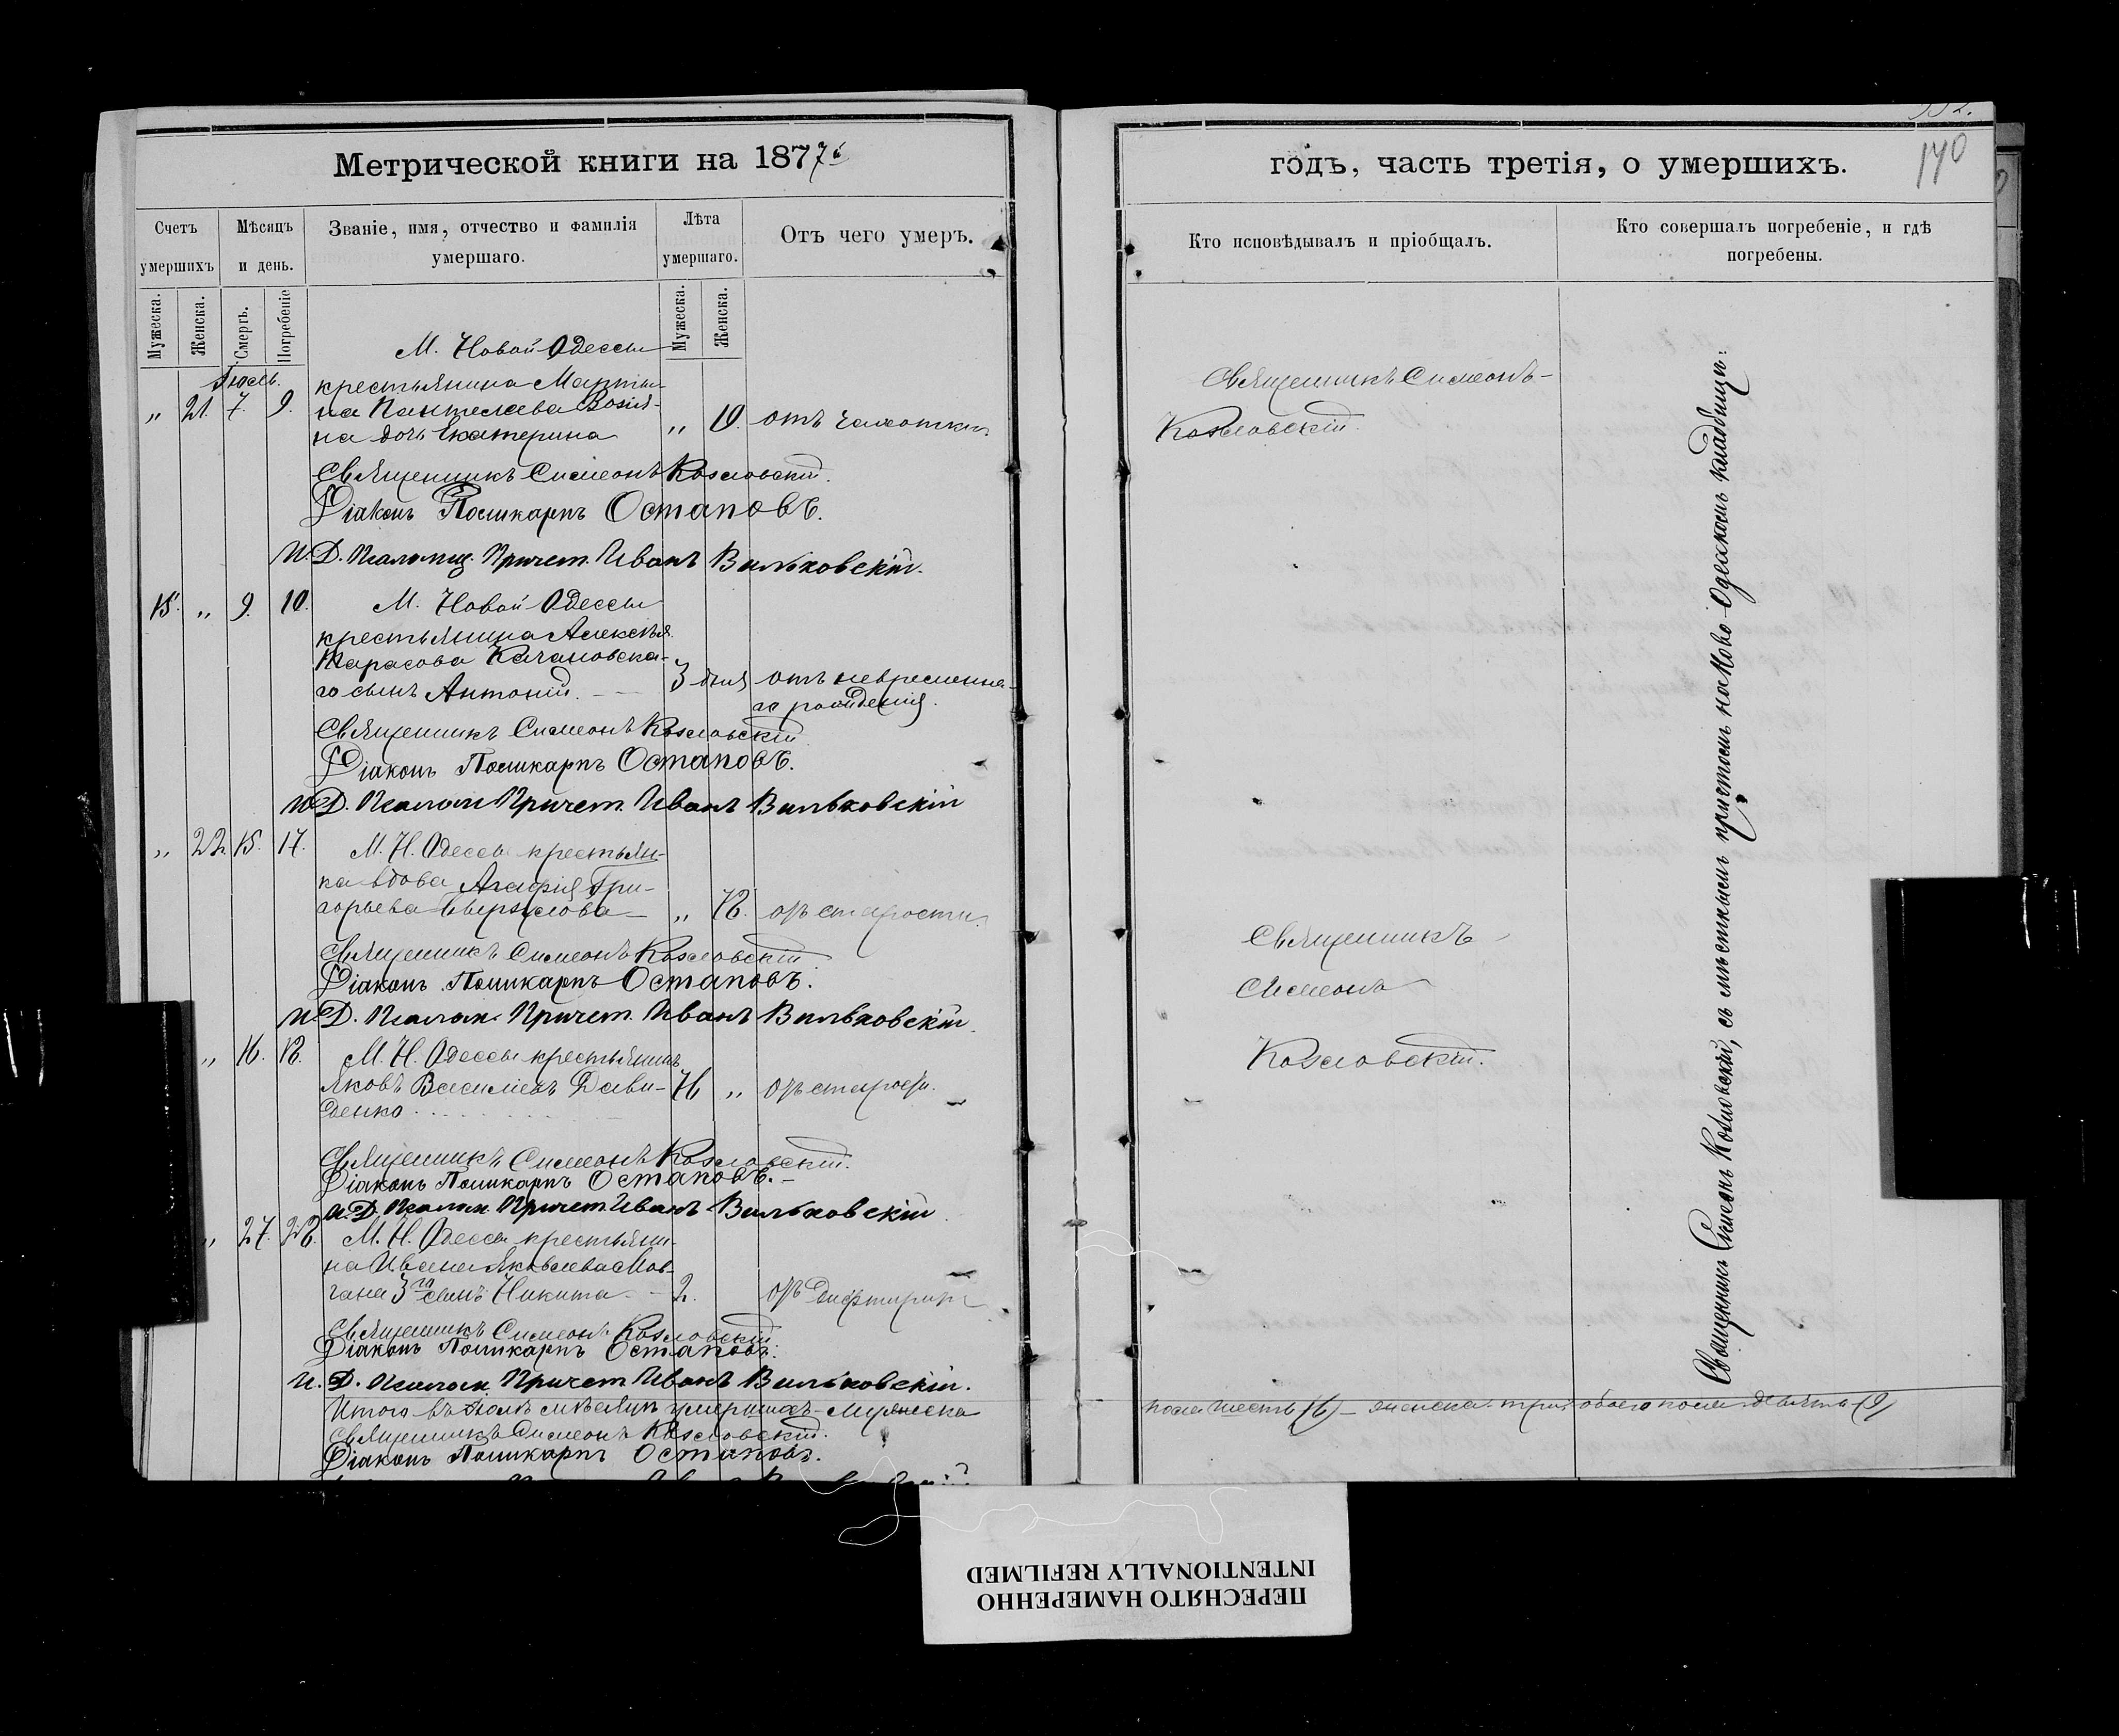 Метрической книги на 1877й
Счетъ умершихъ
Мѣсяцъ и день.
Званіе, имя, отчество и фамилія умершаго.
Лѣта умершаго.
Отъ чего умеръ.
Мужеска.
Женска.
Смерть.
Погребеніе
Мужеска.
Женска.
М. Новой Одессы
Іюль.
крестьянина Марты-
„ 21. 7. 9. на Пантелеева Возія-
на дочь Екатерина „ 19. отъ чахотки
Священникъ Симеонъ Козловскій.
Діаконъ Поликарпъ Остаповъ.
И.Д. Псаломщ. Причет. Иванъ Вильковскій.
15. „ 9. 10. М. Новой Одессы
крестьянина Алексѣя
Тарасова Качановска-
го сынъ Антоній. 3 дня отъ невременна-
го рожденія.
Священникъ Симеонъ Козловскій
Діаконъ Поликарпъ Остаповъ.
И.Д. Псалом Причет. Иванъ Вильковскій
„ 22. 15. 17. М. Н. Одессы крестьян-
ка вдова Агафія Гри-
горьева „ 78. отъ старости
Священникъ Симеонъ Козловскій
Діаконъ Поликарпъ Остаповъ.
И.Д. Псалом. Причет. Иванъ Вильковскій.
„ 16. 18. М. Н. Одессы крестьянинъ
Яковъ Василіевъ Дави- 76 „ отъ старости.
денко
Священникъ Симеонъ Козловскій.
Діаконъ Поликарпъ Остаповъ.
И.Д. Псалом. Причет Иванъ Вильковскій
„ 27. 28. М. Н. Одессы крестьяни-
на Ивана Яковлева Мов-
чана 3го сынъ Никита 2. отъ дифтирита
Священникъ Симеонъ Козловскій
Діаконъ Поликарпъ Остаповъ.
И.Д. Псалом Причет Иванъ Вильковскій.
Итого въ Іюлѣ мѣсяцѣ умершихъ Мужеска
Священникъ Симеонъ Козловскій.
Діаконъ Поликарпъ Остаповъ.
140
годъ, часть третія, о умершихъ.
Кто исповѣдывалъ и пріобщалъ.
Кто совершалъ погребеніе, и гдѣ погребены.
Священникъ Симеонъ
Козловскій.
Священникъ
Симеонъ
Козловскій.
Священникъ Симеонъ Козловскій, съ мѣстнымъ причтомъ на Ново-Одесскомъ кладбищѣ.
пола шесть (6) женска три обоего пола девять (9)
ПЕРЕСНЯТО НАМЕРЕННО
INTENTIONALLY REFILMED